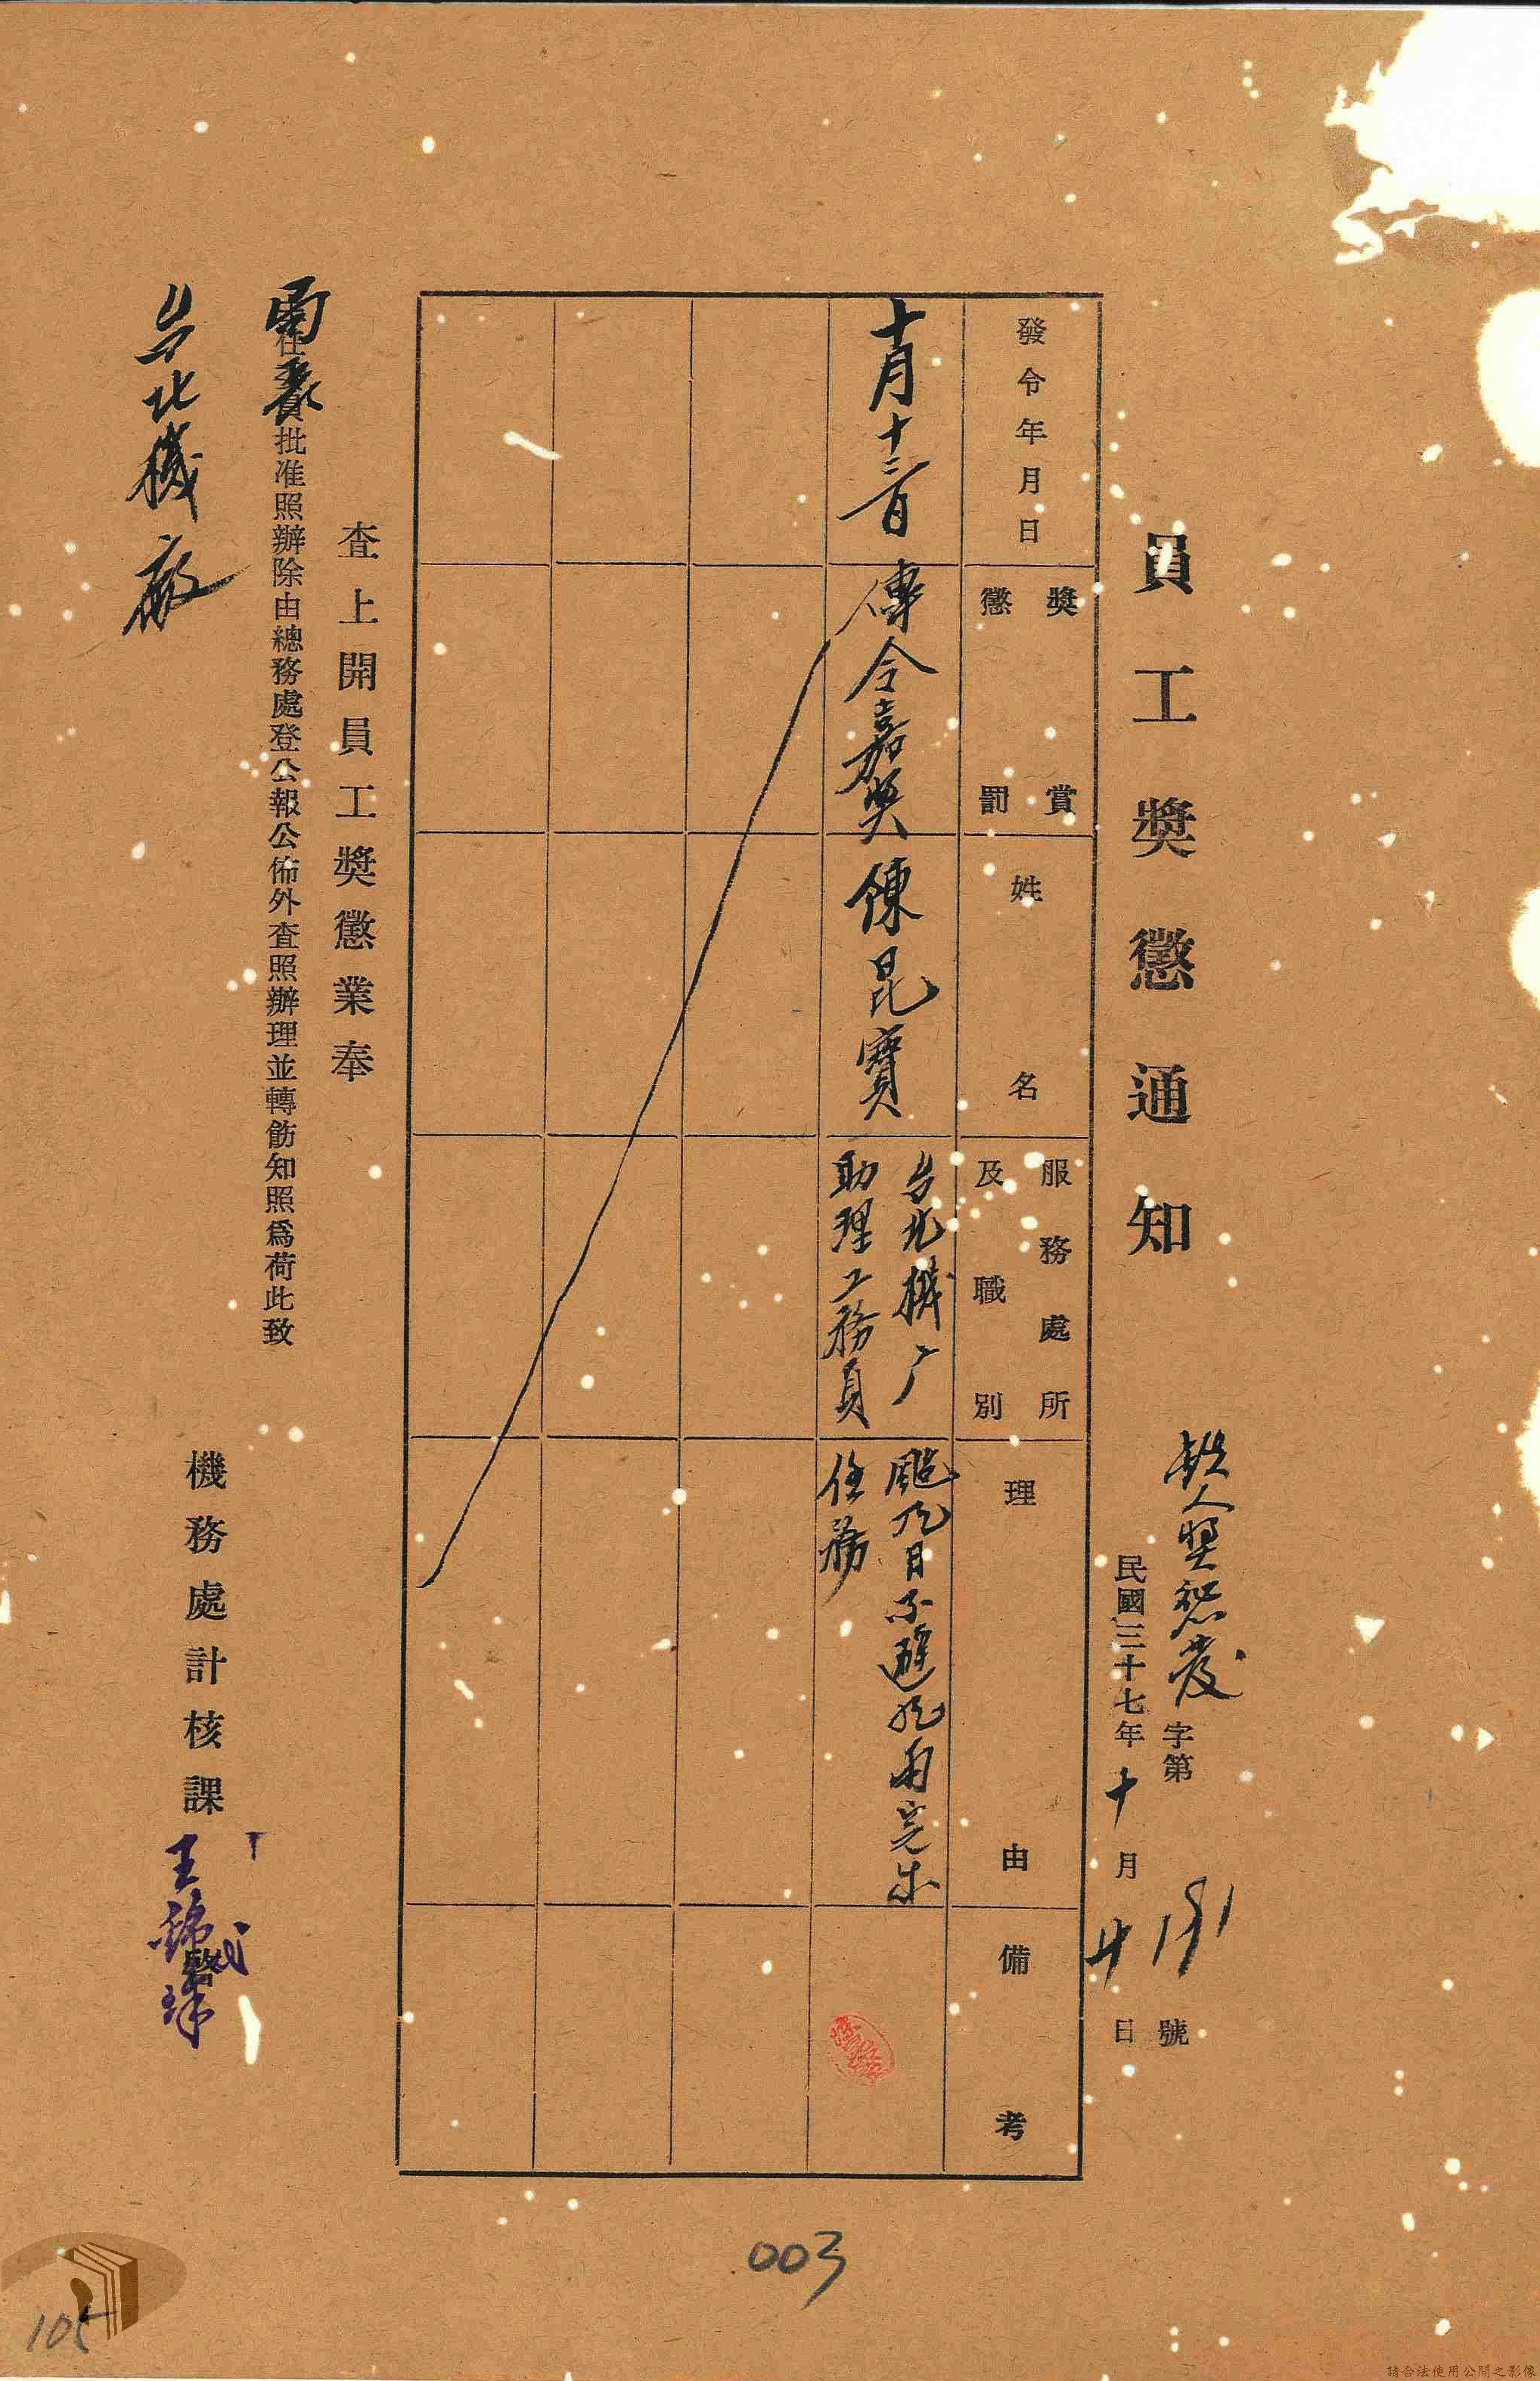 員工獎懲通知
鉄人獎懲發字第191號
民國三十七年十月廿日
發令年月日
獎賞
懲罰
姓名
服務處所
及職別
理由
備考
十月十三日
傳令嘉獎
陳昆寶
台北機厂
助理工務員
颱風日不避風雨完成
任務
查上開員工獎懲業奉
批准照辦除由總務處登公報公佈外查照辦理並轉飭知照爲荷此致
台北機廠
機務處計核課
王錦
啓
003
105
請合法使用公開之影像